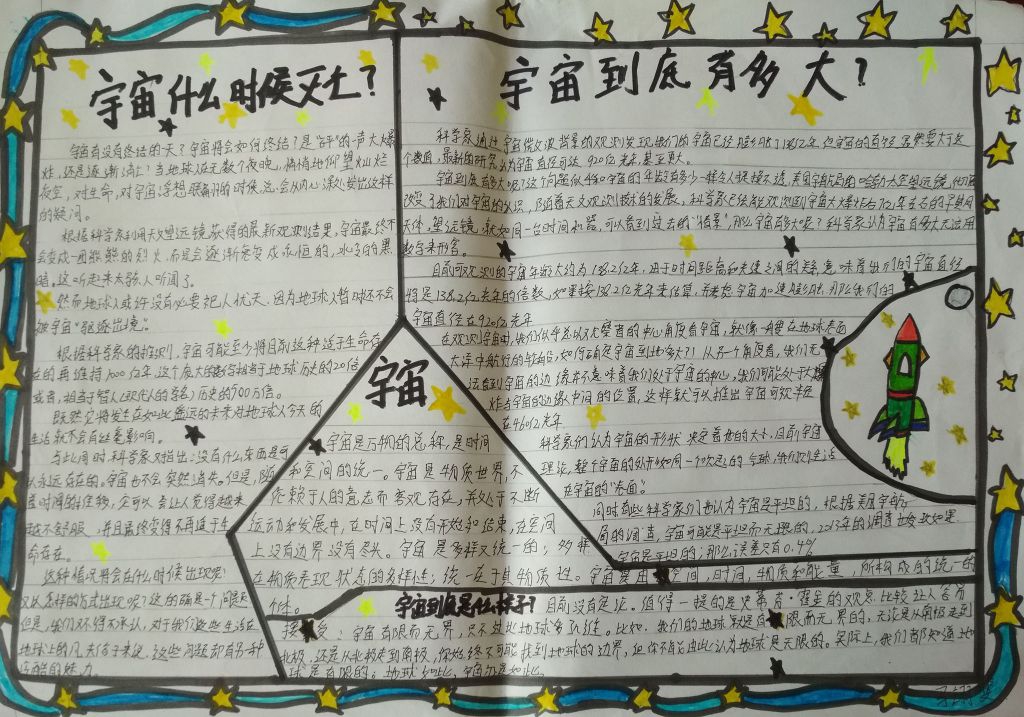 宇宙什么时候灭亡?
宇宙有没有终结的一天?宇宙将会如何终结?是"砰"的一声大爆
炸,还是逐渐消亡?当地球近无数个夜晚,悄悄地仰望灿烂
夜空,对生命,对宇宙浮想联翩的时候,总会从内心深处发出这样
的疑问。
根据科学家利用天文望远镜获得的最新观测结果,宇宙最终不
会变成一团熊熊的烈火,而是会逐渐衰变成永恒的,冰冷的黑
暗,这听起来太骇人听闻了。
然而地球人或许没有必要杞人忧天,因为地球人暂时还不会
被宇宙"驱逐出境"。
根据科学家的推测,宇宙可能至少将目前这种适于生命存
在的再维持1000亿年,这个庞大的数字相当于地球历史的20倍
或者,相当于智人(现代人的学名)历史的500万倍。
既然它将发生在如此遥远的未来,对地球人今天的
生活就不会有丝毫影响。
与此同时,科学家又指出:没有什么东西是可
以永远存在的。宇宙也不会突然消失。但是,随
着时间的推移,它可以会让人觉得越来
越不舒服,并且最终变得不再适于生
命存在。
这种情况将会在什么时候出现呢?
又以怎样的方式出现呢?这的确是一个问题
但是,我们不得不承认,对于我们这些生活在
地球上的凡夫俗子来说,这些问题却有另一种
的魅力。
宇宙到底有多大?
科学家通过宇宙微波背景的观测发现,我们的宇宙已经膨胀了138亿年,但宇宙的直径
个数值,最新的研究认为宇宙直径可达920亿光年,甚至更大。
宇宙到底有多大呢?这个问题似乎和宇宙的年龄有多少一样令人捉摸不透,美国宇航局的哈勃太空望远镜,
改变了我们对宇宙的认识,随着天文观测技术的发展,科学家已经能观测到宇宙大爆炸后
天体,望远镜就如同一台时间机器,可以看到过去的"档案",那么宇宙有多大呢?科学家认为宇宙的庞大无法用
数字来形容。
目前可观测的宇宙年龄大约为138.2亿年,由于时间距离和光速之间的关系,意味着我们的宇宙直径
将是138.2亿光年的倍数,如果按138.2亿光年来估算,并考虑宇宙加速膨胀,那么我们的
宇宙直径在920亿光年
在观测宇宙时,我们似乎总以观察者的中心角度看宇宙,就像一艘在地球表面
大洋中航行的船舶,如何确定宇宙到底多大?从另一个角度看,我们无
法看到宇宙的边缘并不意味着我们处于宇宙的中心,我们可能处于大爆
炸与宇宙的边缘中间的位置,这样就可以推出宇宙可观半径
在460亿光年
科学家们认为宇宙的形状决定着她的大小,目前宇宙
理论,整个宇宙的外形如同一个吹起的气球,我们则生活
在宇宙的"表面"。
同时有些科学家们也认为宇宙是平坦的,根据美国宇航
局的调查,宇宙可能是平坦而无限的,2013年的调查
宇宙是平坦的,那么误差只有0.4%
宇宙
宇宙是万物的总称,是时间
和空间的统一。宇宙是物质世界,不
依赖于人的意志而客观存在,并处于不断
运动和发展中,在时间上没有开始和结束,在空间
上没有边界没有尽头。宇宙是多样又统一的;多样
在物质表现状态的多样性;统一在于其物质性。宇宙是由空间,时间,物质和能量,所构成的统一的
体。
宇宙到底是什么样子?
目前没有定论。值得一提的是史蒂芬·霍金的观点比较让人容易
接受:宇宙有限而无界,只不过比地球多了几维。比如,我们的地球就是有限而无界的,无论是从南极走到
北极,还是从北极走到南极,你始终不可能找到地球的边界,但你不能由此认为地球是无限的。实际上,我们都知道地
球是有限的;地球如此,宇宙亦是如此。